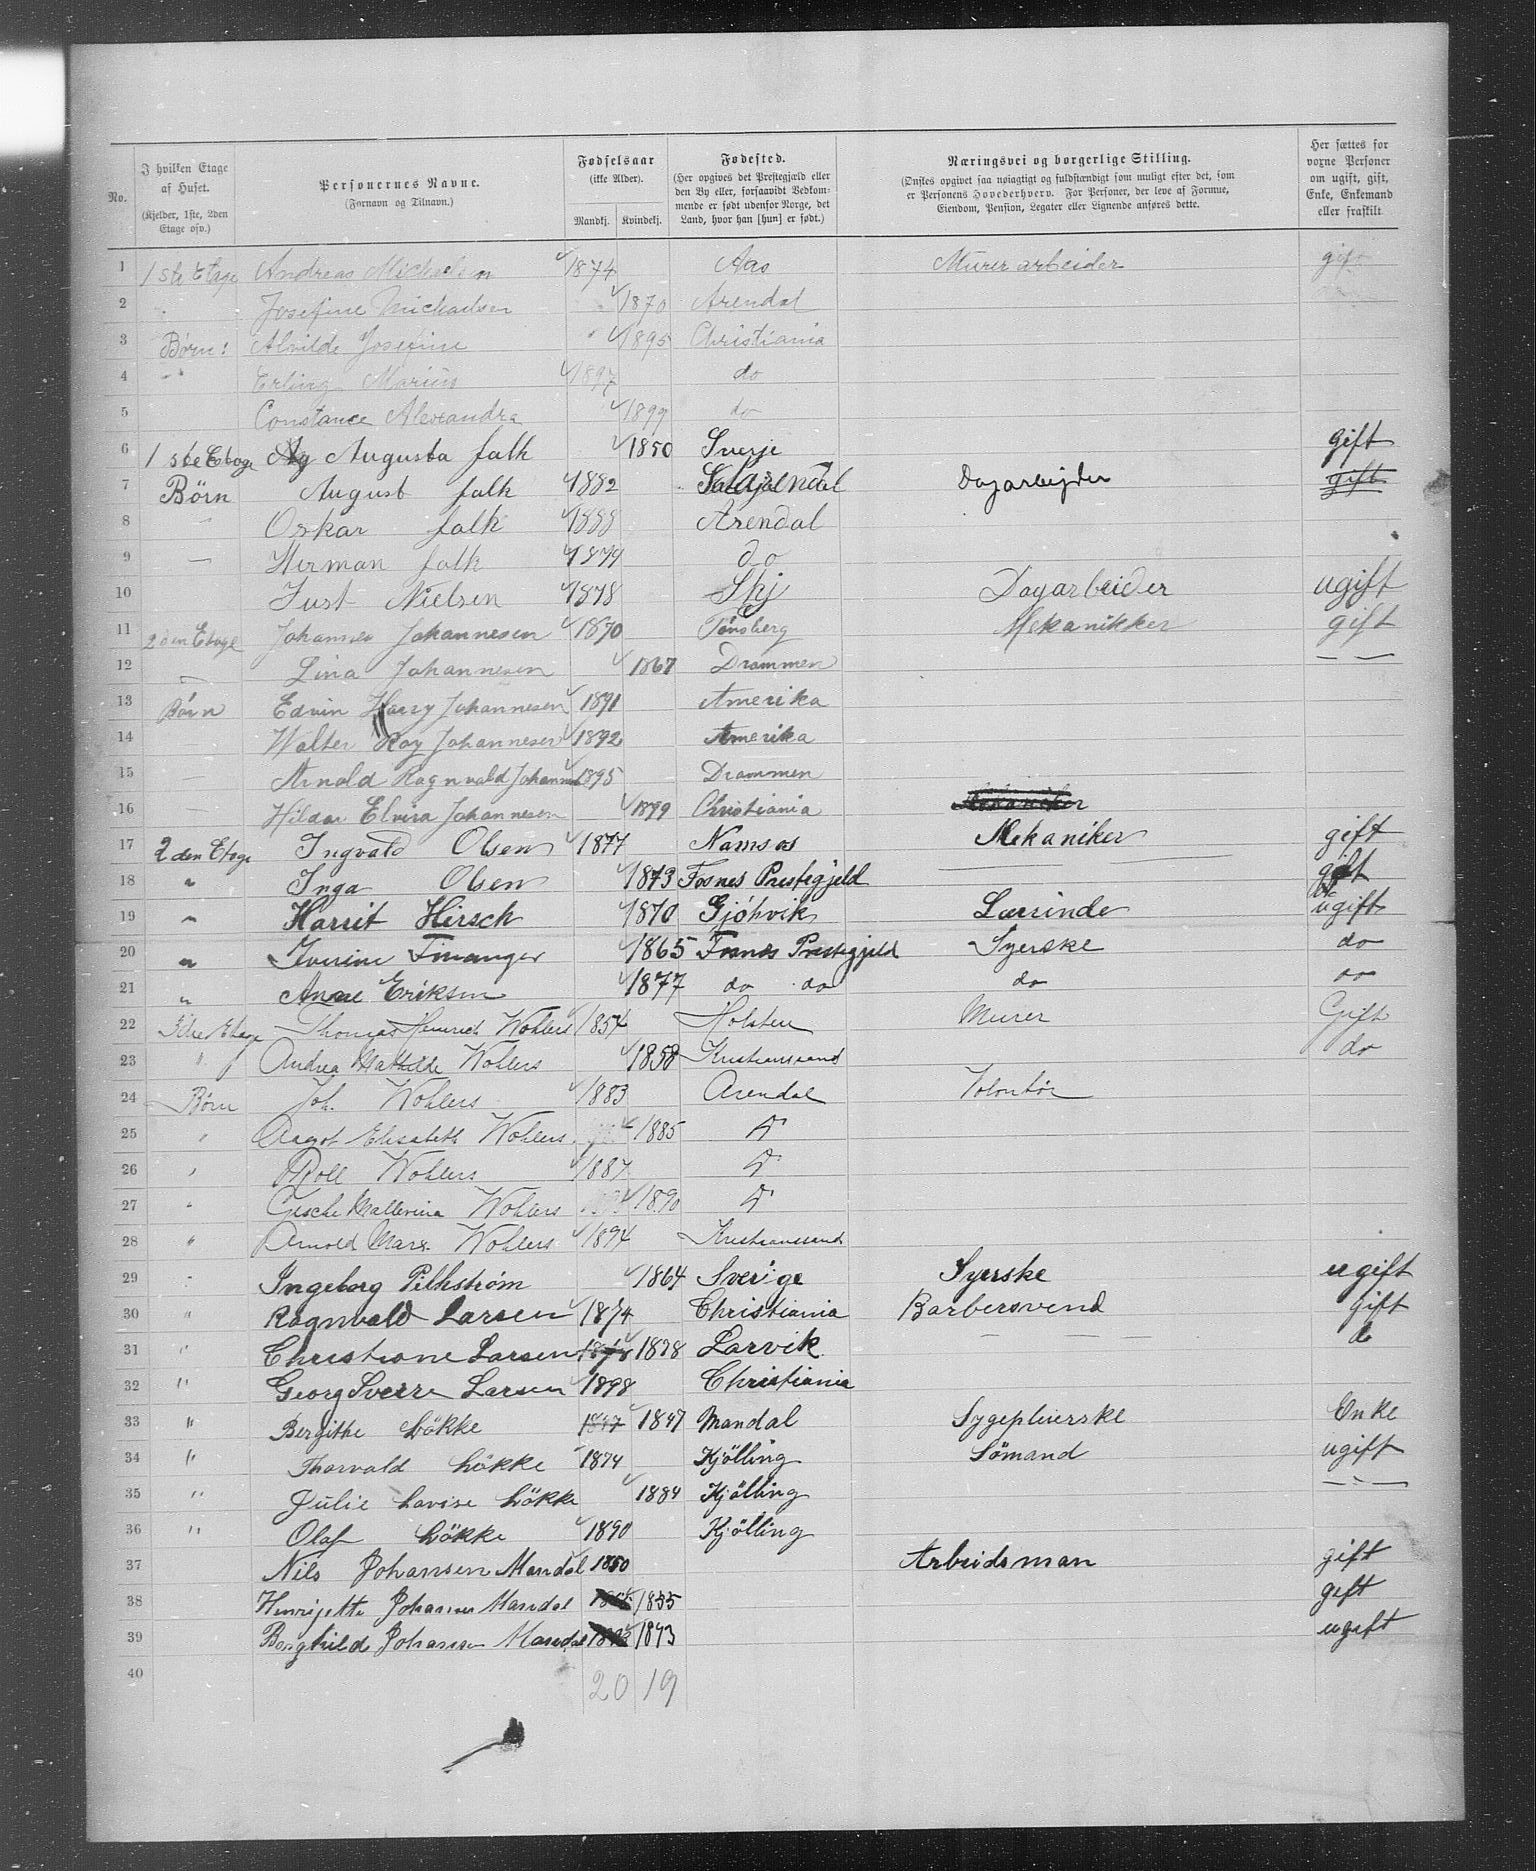 No.
I hvilken Etage af Huset.
(Kjelder, 1ste, 2den Etage osv.)
Personernes Navne.
(Fornavn og Tilnavn.)
Fødselsaar
(ikke Alder).
Mandkj. Kvindekj.
Fødested.
(Her opgives det Prestegjæld eller den By eller, forsaavidt Vedkommende er født udenfor Norge, det Land, hvor han [hun] er født.)
Næringsvei og borgerlige Stilling.
(Ønskes opgivet saa nøiagtigt og fuldstændigt som muligt efter det, som er Personens Hovederhverv. For Personer, der leve af Formue, Eiendom, Pension, Legater eller Lignende anføres dette.
Her sættes for vorne Personer om ugift, gift, Enke, Enkemand eller fraskilt
1 1ste Etage Andreas Michaelsen 1874 Aas Murer arbeider gift
2 Josefine Michaelsen 1870 Arendal
3 Børn: Alvilde Josefine 1895 Christiania
4 Erling Marius 1897 do
5 Constance Alexandra 1899 do
6 1 ste Etage Augusta falk 1850 Sverje gift
7 Børn August falk 1882 Arendal Dagarbejder gift
8 Oskar falk 1888 Arendal
9 Herman falk 1879 do
10 Just Nielsen 1878 Skj Dagarbeider ugift
11 2den Etage Johannes Johannesen 1870 Tønsberg Mekanikker gift
12 Lina Johannesen 1867 Drammen — —
13 Børn Edvin Harry Johannesen 1891 Amerika
14 Walter Roy Johannesen 1892 Amerika
15 Arnold Ragnvald Johannes 1895 Drammen
16 Hildar Elvira Johannesen 1899 Christiania
17 2 den Etage Ingvald Olsen 1877 Namsos Mekaniker gift
18 " Inga Olsen 1873 Fosnes Prestegjeld gift
19 " Harrit Hirsch 1870 Gjøhvik Lærinde ugift
20 " Iverine Finanger 1865 Fosnes Prestegjeld Syerske do
21 " Anne Eriksen 1877 do do do do
22 Thomas Heinrich Wohlers 1854 Holsten Murer Gift
23 " Andrea Mathilde Wohlers 1858 Kristianssand do
24 Børn Joh. Wohlers 1883 Arendal Volontør
25 Aagot Elisabeth Wohlers 1885 do
26 Rolf Wohlers 1887 do
27 Gesche Wohlers 1890 do
28 " Arnold Marx Wohlers 1894 Kristianssand
29 Ingeborg Pilkstrøm 1864 Sverige Syerske ugift
30 " Ragnvald Larsen 1874 Christiania Barbersvend gift
31 " Christiane Larsen 1878 1878 Larvik — — — do
32 " Georg Sverre Larsen 1898 Christiania
33 " Bergithe Løkke 1847 1847 Mandal Sygepleierske Enke
34 " Thorvald Løkke 1874 Kjölling Sömand ugift
35 " Julie Lovise Løkke 1884 Kjölling — " —
36 " Olaf Løkke 1890 Kjölling
37 Nils Johansen Mandal 1850 Arbeidsman gift
38 Henrijette Johansen Mandal 1855 gift
39 Borghilde Johansen Mandal 1873 ugift
40 20 19